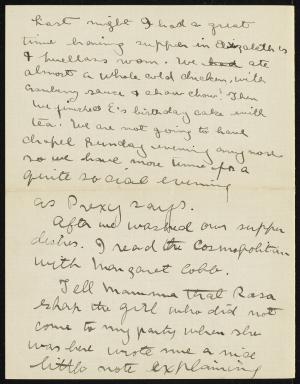 Last night I had a great
time having supper in Elizabeth's
& Luella's room. We had ate
almost a whole cold chicken, with
cranberry sauce & chow chow! Then
we finished E's birthday cake with
tea. We are not going to have
chapel Sunday evening any more
so we have more time for a
quite social evening
as Prexy says.
After we washed our supper
dishes. I read the Cosmopolitan
with Margaret Cobb.
Tell Mamma that Rosa
the girl who did not
come to my party when she
was here wrote me a nice
little note explaining